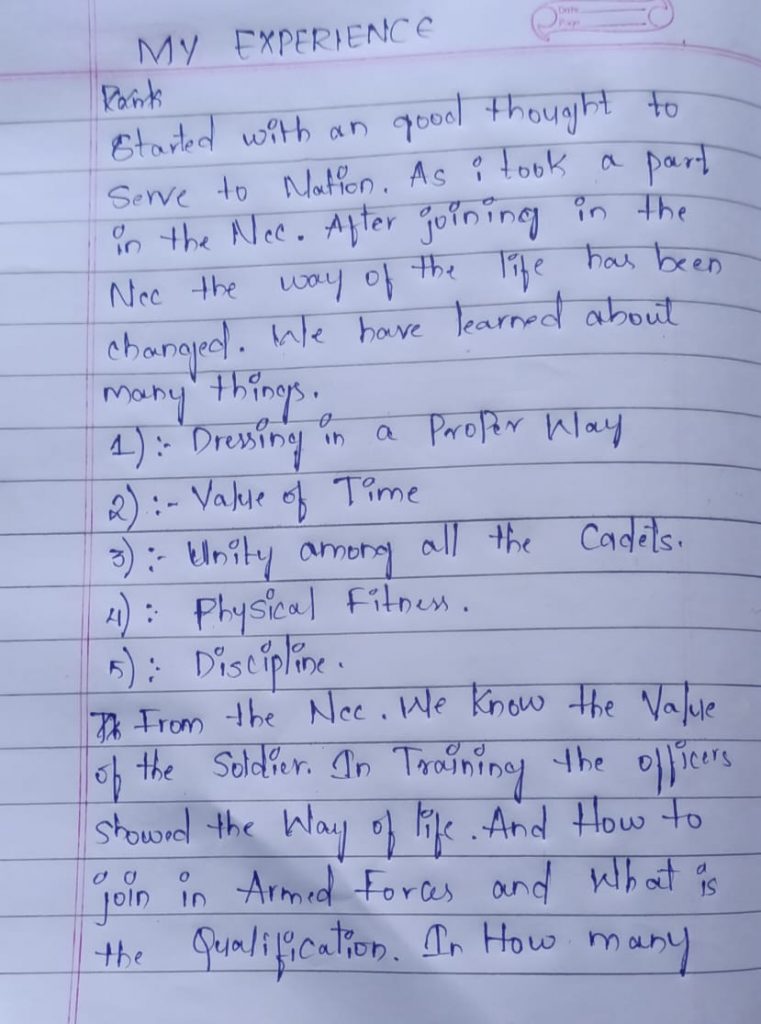 MY EXPERIENCE
Date
Page
Rank
Started with an good thought to
Serve to Nation. As i took a part
in the Ncc. After joining in the
Ncc the way of the life has been
changed. We have learned about
many things.
1) :- Dressing in a Proper Way
2) :- Value of Time
3) :- Unity among all the Cadets.
4) : Physical Fitness.
5) : Discipline.
From the Ncc. We Know the Value
of the Soldier. In Training the officers
showed the Way of life. And How to
join in Armed Forces and What is
the Qualification. In How many